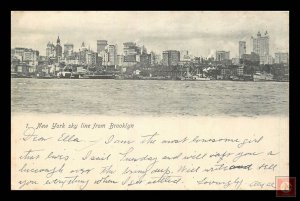 1. New York sky line from Brooklyn
Dear Ella: I am the most lonesome girl
that lives. I sail Tuesday and will wish you a
over the
Will write and tell
you everything when I get settled. Lovingly